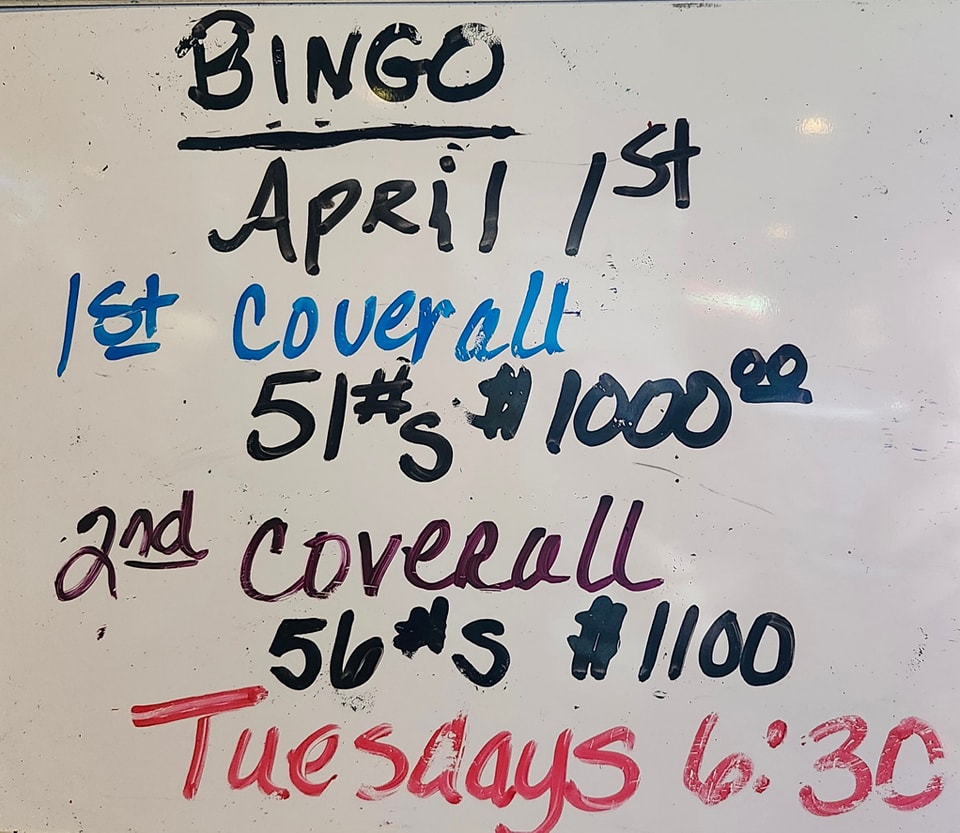 BINGO
April 1st
1st Coverall
51#s $100000
2nd Coverall
56#s $1100
Tuesdays 6:30